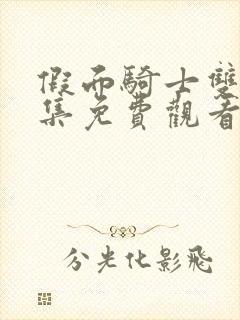 假面騎士雙
集免費觀看
分光化影飛